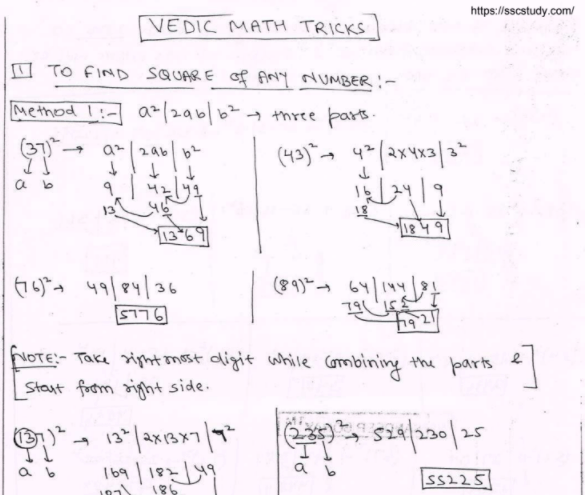 https://sscstudy.com/
VEDIC MATH TRICKS
1 TO FIND SQUARE of ANY NUMBER:-
Method 1:- a²|2ab|b² → three parts.
(37)² → a²|2ab|b²
a b
9 | 42 | 49
13 46
1369
(43)² → 4²|2x4x3|3²
16 | 24 | 9
18
1849
(76)² → 49|84|36
5776
(89)² → 64|144|81
79 152
7921
NOTE:- Take right most digit while combining the parts &
start from right side.
(137)² → 13²|2x13x7|7²
a b
169 | 182 | 49
187 186
(235)² → 529|230|25
a b
55225